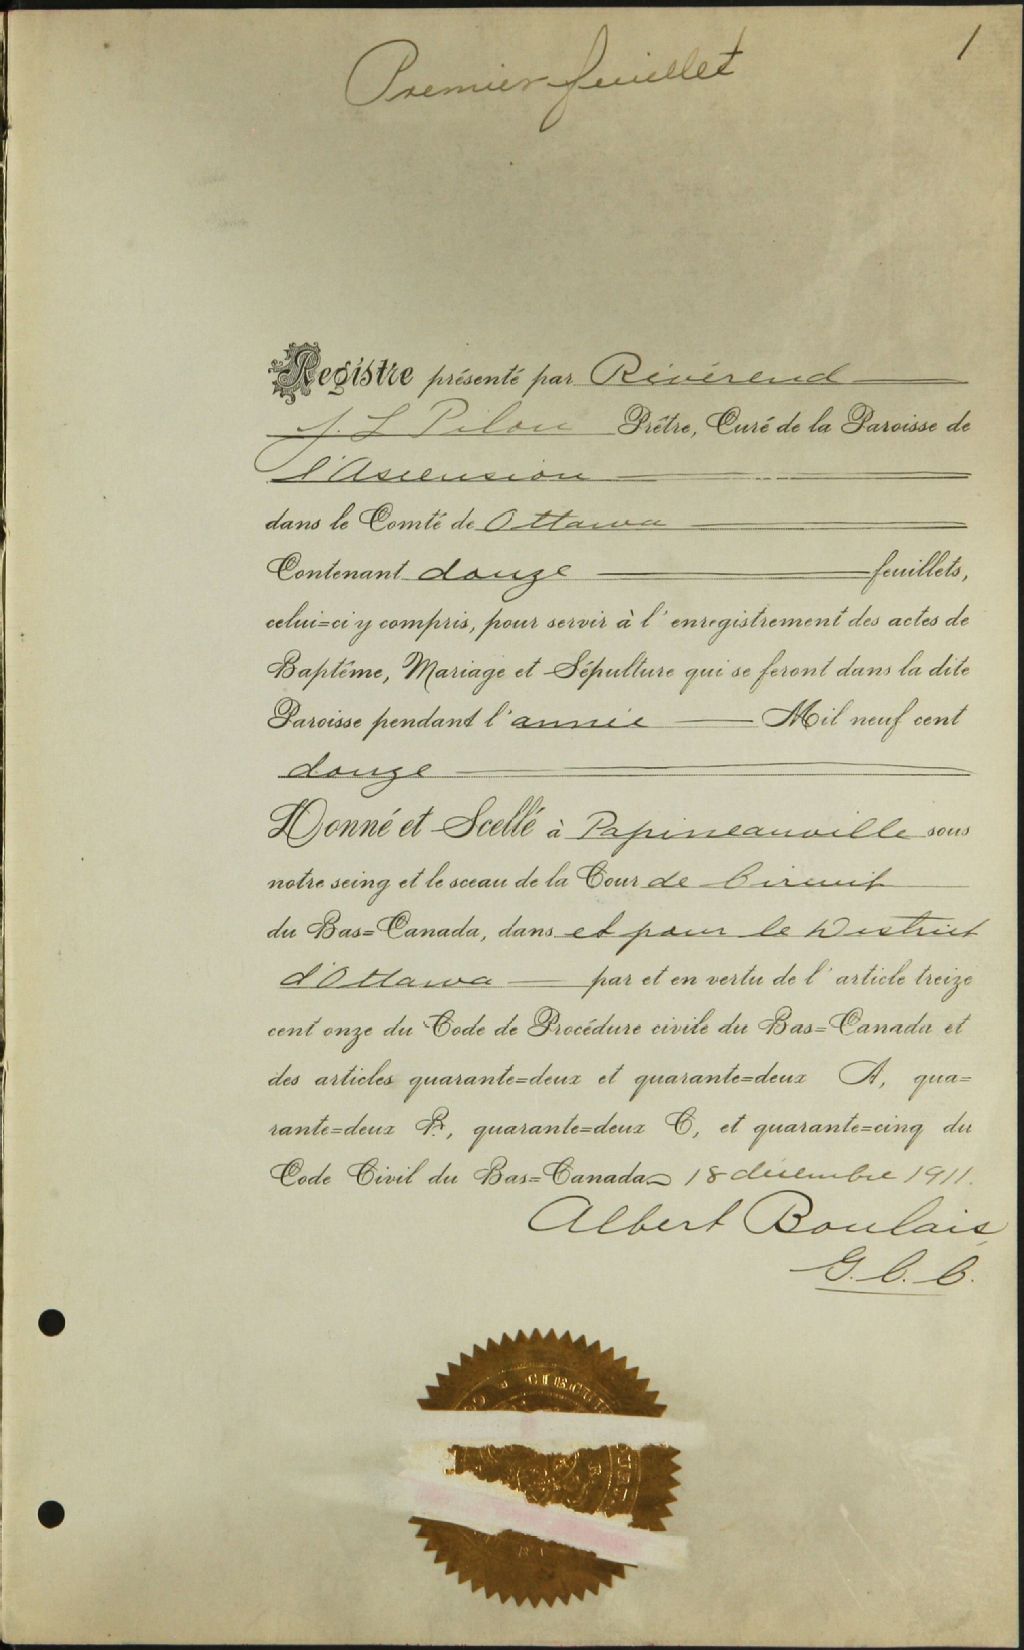 1
Premier feuillet
Registre présenté par Révérend
J. L Pilon Prêtre, Curé de la Paroisse de
l'Ascension
dans le Comté de Ottawa
Contenant douze feuillets,
celui=ci y compris, pour servir à l'enregistrement des actes de
Baptême, Mariage et Sépulture qui se feront dans la dite
Paroisse pendant l'année Mil neuf cent
douze
Donné et Scellé à Papineauville sous
notre seing et le sceau de la Cour de Circuit
du Bas=Canada, dans et pour le District
d'Ottawa par et en vertu de l'article treize
cent onze du Code de Procédure civile du Bas=Canada et
des articles quarante=deux et quarante=deux A, qua=
rante=deux B, quarante=deux C, et quarante=cinq du
Code Civil du Bas=Canada 18 décembre 1911.
Albert Boulais
G. C. C.